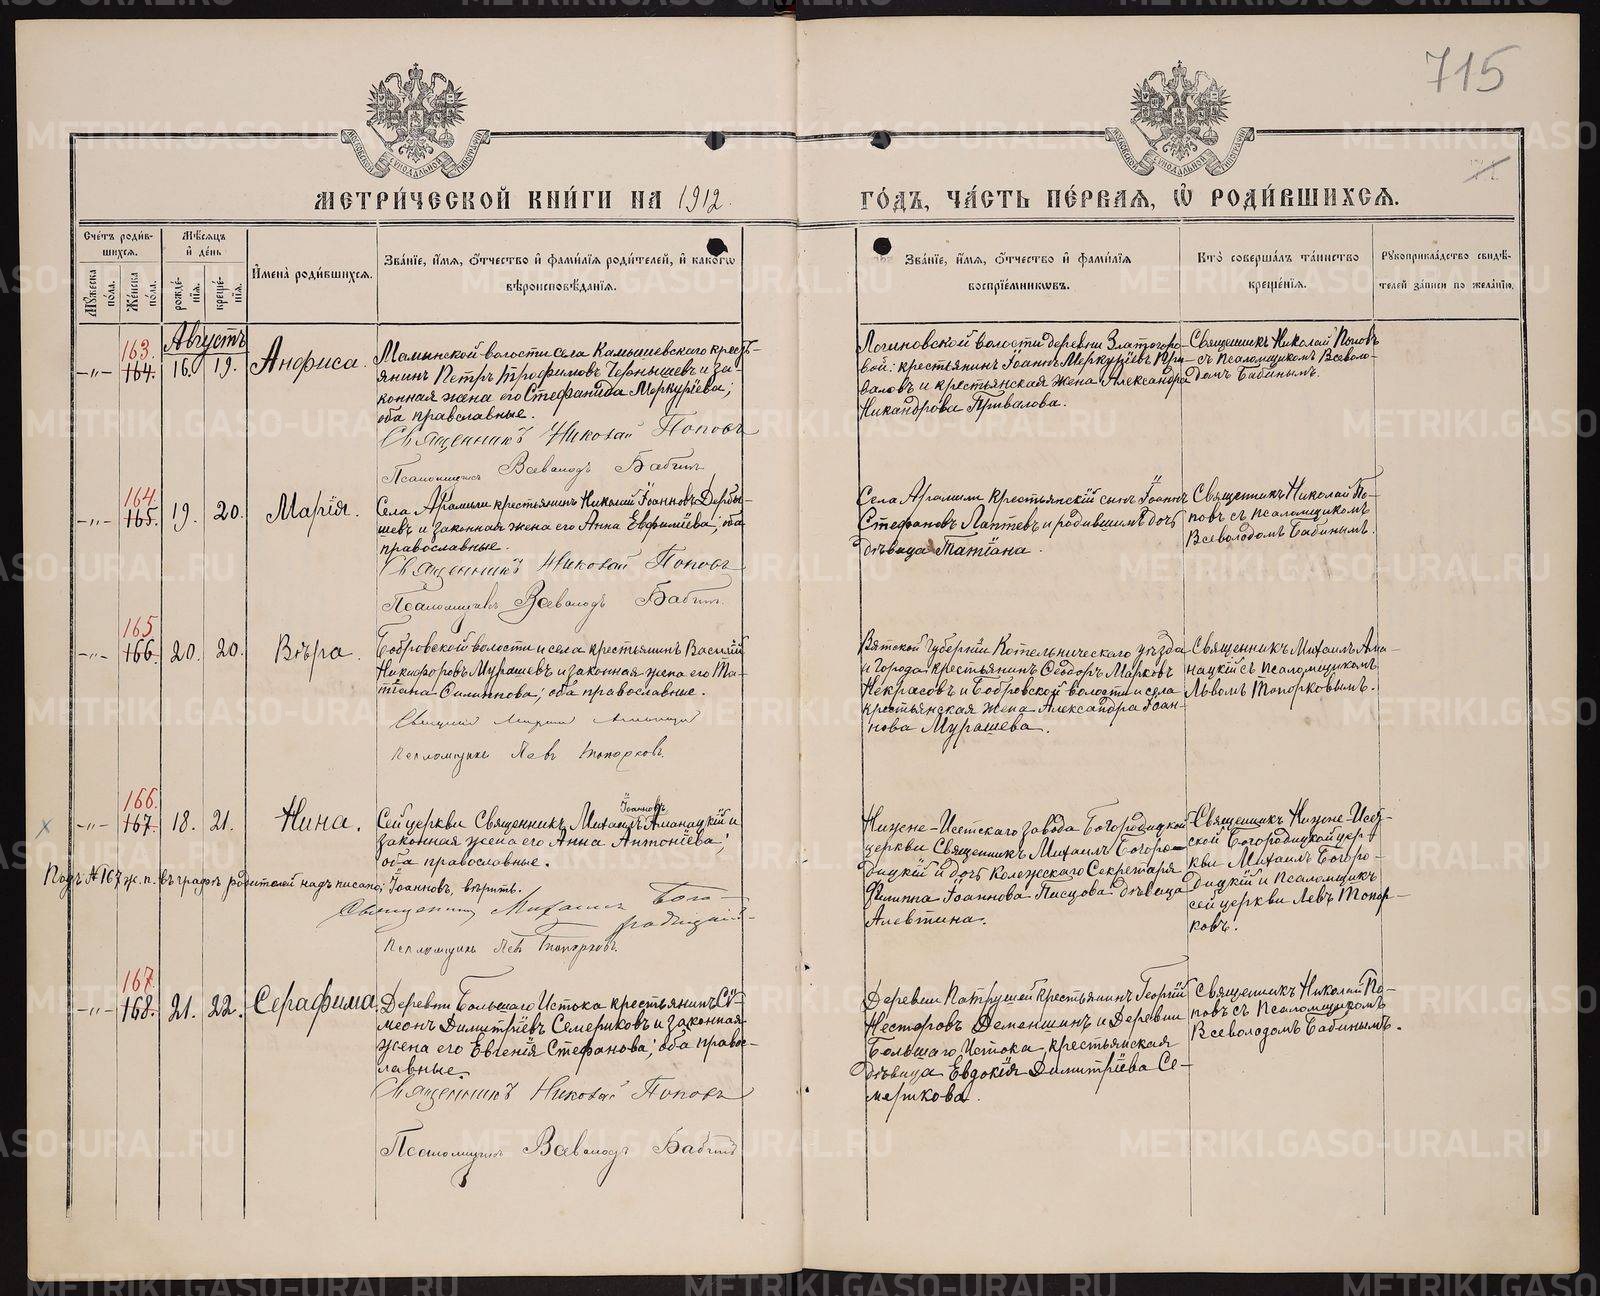 715
МОСКОВСКОЙ СѴНОДАЛЬНОЙ ТИПОГРАФІИ
МОСКОВСКОЙ СѴНОДАЛЬНОЙ ТИПОГРАФІИ
МЕТРИ́ЧЕСКОЙ КНИ́ГИ НА 1912
ГО́ДЪ, ЧА́СТЬ ПЕ́РВАѦ, Ѽ РОДИ́ВШИХСѦ.
Сче́тъ роди́в-
шихсѧ.
Мꙋ́жеска пола.
Же́нска пола.
Мѣ́сѧцъ
и҆ де́нь
рожде́-
нїѧ.
креще́-
нїѧ.
И҆мена̀ роди́вшихсѧ.
Зва́нїе, и҆́мѧ, ѻ҆́тчество и҆ фами́лїѧ роди́телей, и҆ какогѡ
вѣроисповѣ́данїѧ.
Зва́нїе, и҆́мѧ, ѻ҆́тчество и҆ фами́лїѧ
воспрїе́мникѡвъ.
Кто̀ соверша́лъ та́инство
креще́нїѧ.
Рꙋкоприкла́дство свидѣ́-
телей за́писи по жела́нїю.
Августъ
163.
-„- 164. 16. 19. Анфиса.
Маминской волости села Камышевскаго крестъ-
янинъ Петръ Трофимовъ Чернышевъ и за-
конная жена его Стефанида Меркурiева;
оба православные.
Священникъ Николай Поповъ
Псаломщикъ Всеволодъ Бабинъ
Логиновской волости деревни Златогоро-
вой: крестьянинъ Іоаннъ Меркурiевъ При-
валовъ и крестьянская жена Александра
Никандрова Привалова.
Священникъ Николай Поповъ
съ Псаломщикомъ Всеволо-
домъ Бабинымъ.
164
-„- 165. 19. 20. Марія.
Села Арамили крестьянинъ Николай Іоанновъ Дербы-
шевъ и законная жена его Анна Евфиміева; оба
православные.
Священникъ Николай Поповъ
Псаломщикъ Всеволодъ Бабинъ
Села Арамили Крестьянскій сынъ Іоаннъ
Стефановъ Лаптевъ и родившимъ дочь
дѣвица Татіана.
Священникъ Николай По-
повъ съ псаломщикомъ
Всеволодомъ Бабинымъ.
165
-„- 166. 20. 20. Вѣра.
Бобровской волости и села крестьянинъ Василій
Никифоровъ Мурашевъ и законная жена его Та-
тіана Филиппова; оба православные.
Священникъ Михаилъ Аманацкій
Псаломщикъ Левъ Топорковъ.
Вятской Губерніи Котельническаго уѣзда
и города крестьянинъ Ѳеодоръ Марковъ
Некрасовъ и Бобровской волости и села
крестьянская жена Александра Іоан-
нова Мурашева.
Священникъ Михаилъ Ама-
нацкій съ Псаломщикомъ
Львомъ Топорковымъ.
166.
-„- 167. 18. 21. Нина.
Іоанновъ
Сей церкви Священникъ Михаилъ Аманацкій и
законная жена его Анна Антоніева;
оба православные.
Подъ № 167 ж. п. въ графѣ родителей надъписано; Іоанновъ, вѣрить.
Священникъ Михаилъ Бого-
родицкій
Псаломщикъ Левъ Топорковъ.
Нижне-Исетскаго завода Богородицкой
церкви Священникъ Михаилъ Богоро-
дицкій и дочь Колежскаго Секретаря
Филиппа Іоаннова Писцова дѣвица
Алевтина.
Священникъ Нижне-Исет-
ской Богородицкой цер-
кви Михаилъ Богоро-
дицкій и Псаломщикъ
сей церкви Левъ Топор-
ковъ.
167
-„- 168. 21. 22. Серафима.
Деревни Большаго Истока крестьянинъ Сѵ-
меонъ Димитріевъ Семериковъ и законная
жена его Евгенія Стефанова; оба правос-
лавные.
Священникъ Николай Поповъ
Псаломщикъ Всеволодъ Бабинъ
Деревни Патрушей крестьянинъ Георгій
Несторовъ Деменшинъ и Деревни
Большаго Истока, крестьянская
дѣвица Евдокія Димитріева Се-
мерикова.
Священникъ Николай По-
повъ съ Псаломщикомъ
Всеволодомъ Бабинымъ.
METRIKI.GASO-URAL.RU